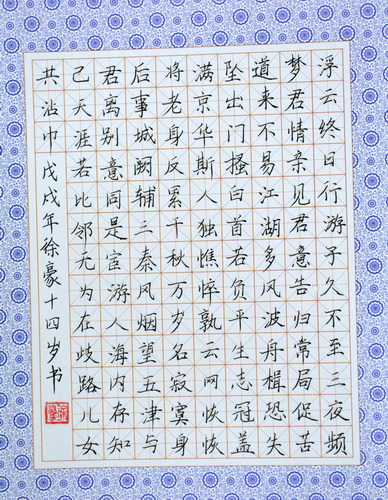 浮云终日行游子久不至三夜频
梦君情亲见君意告归常局促苦
道来不易江湖多风波舟楫恐失
坠出门搔白首若负平生志冠盖
满京华斯人独憔悴孰云网恢恢
将老身反累千秋万岁名寂寞身
后事城阙辅三秦风烟望五津与
君离别意同是宦游人海内存知
己天涯若比邻无为在歧路儿女
共沾巾戊戌年徐豪十四岁书